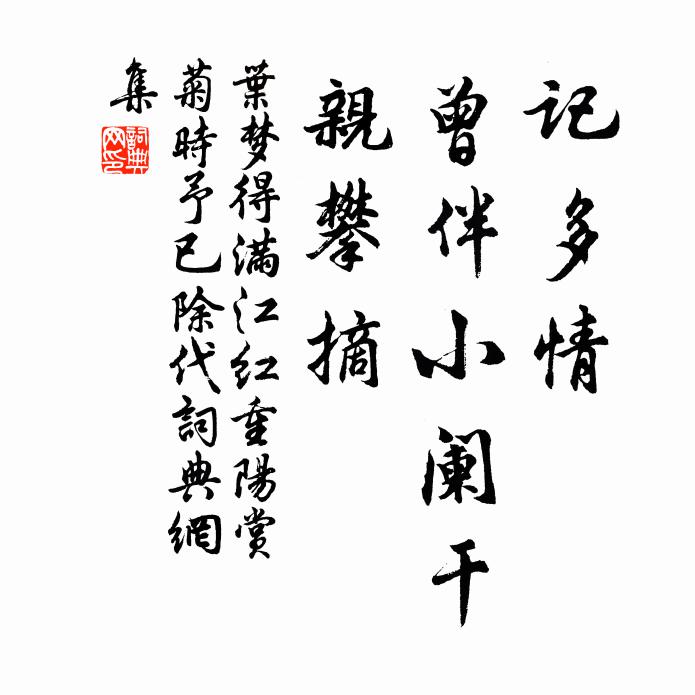 记多情
曾伴小阑干
親攀摘
葉梦得满江红重陽赏
菊時予已除代詞典網
集
詞典
网印